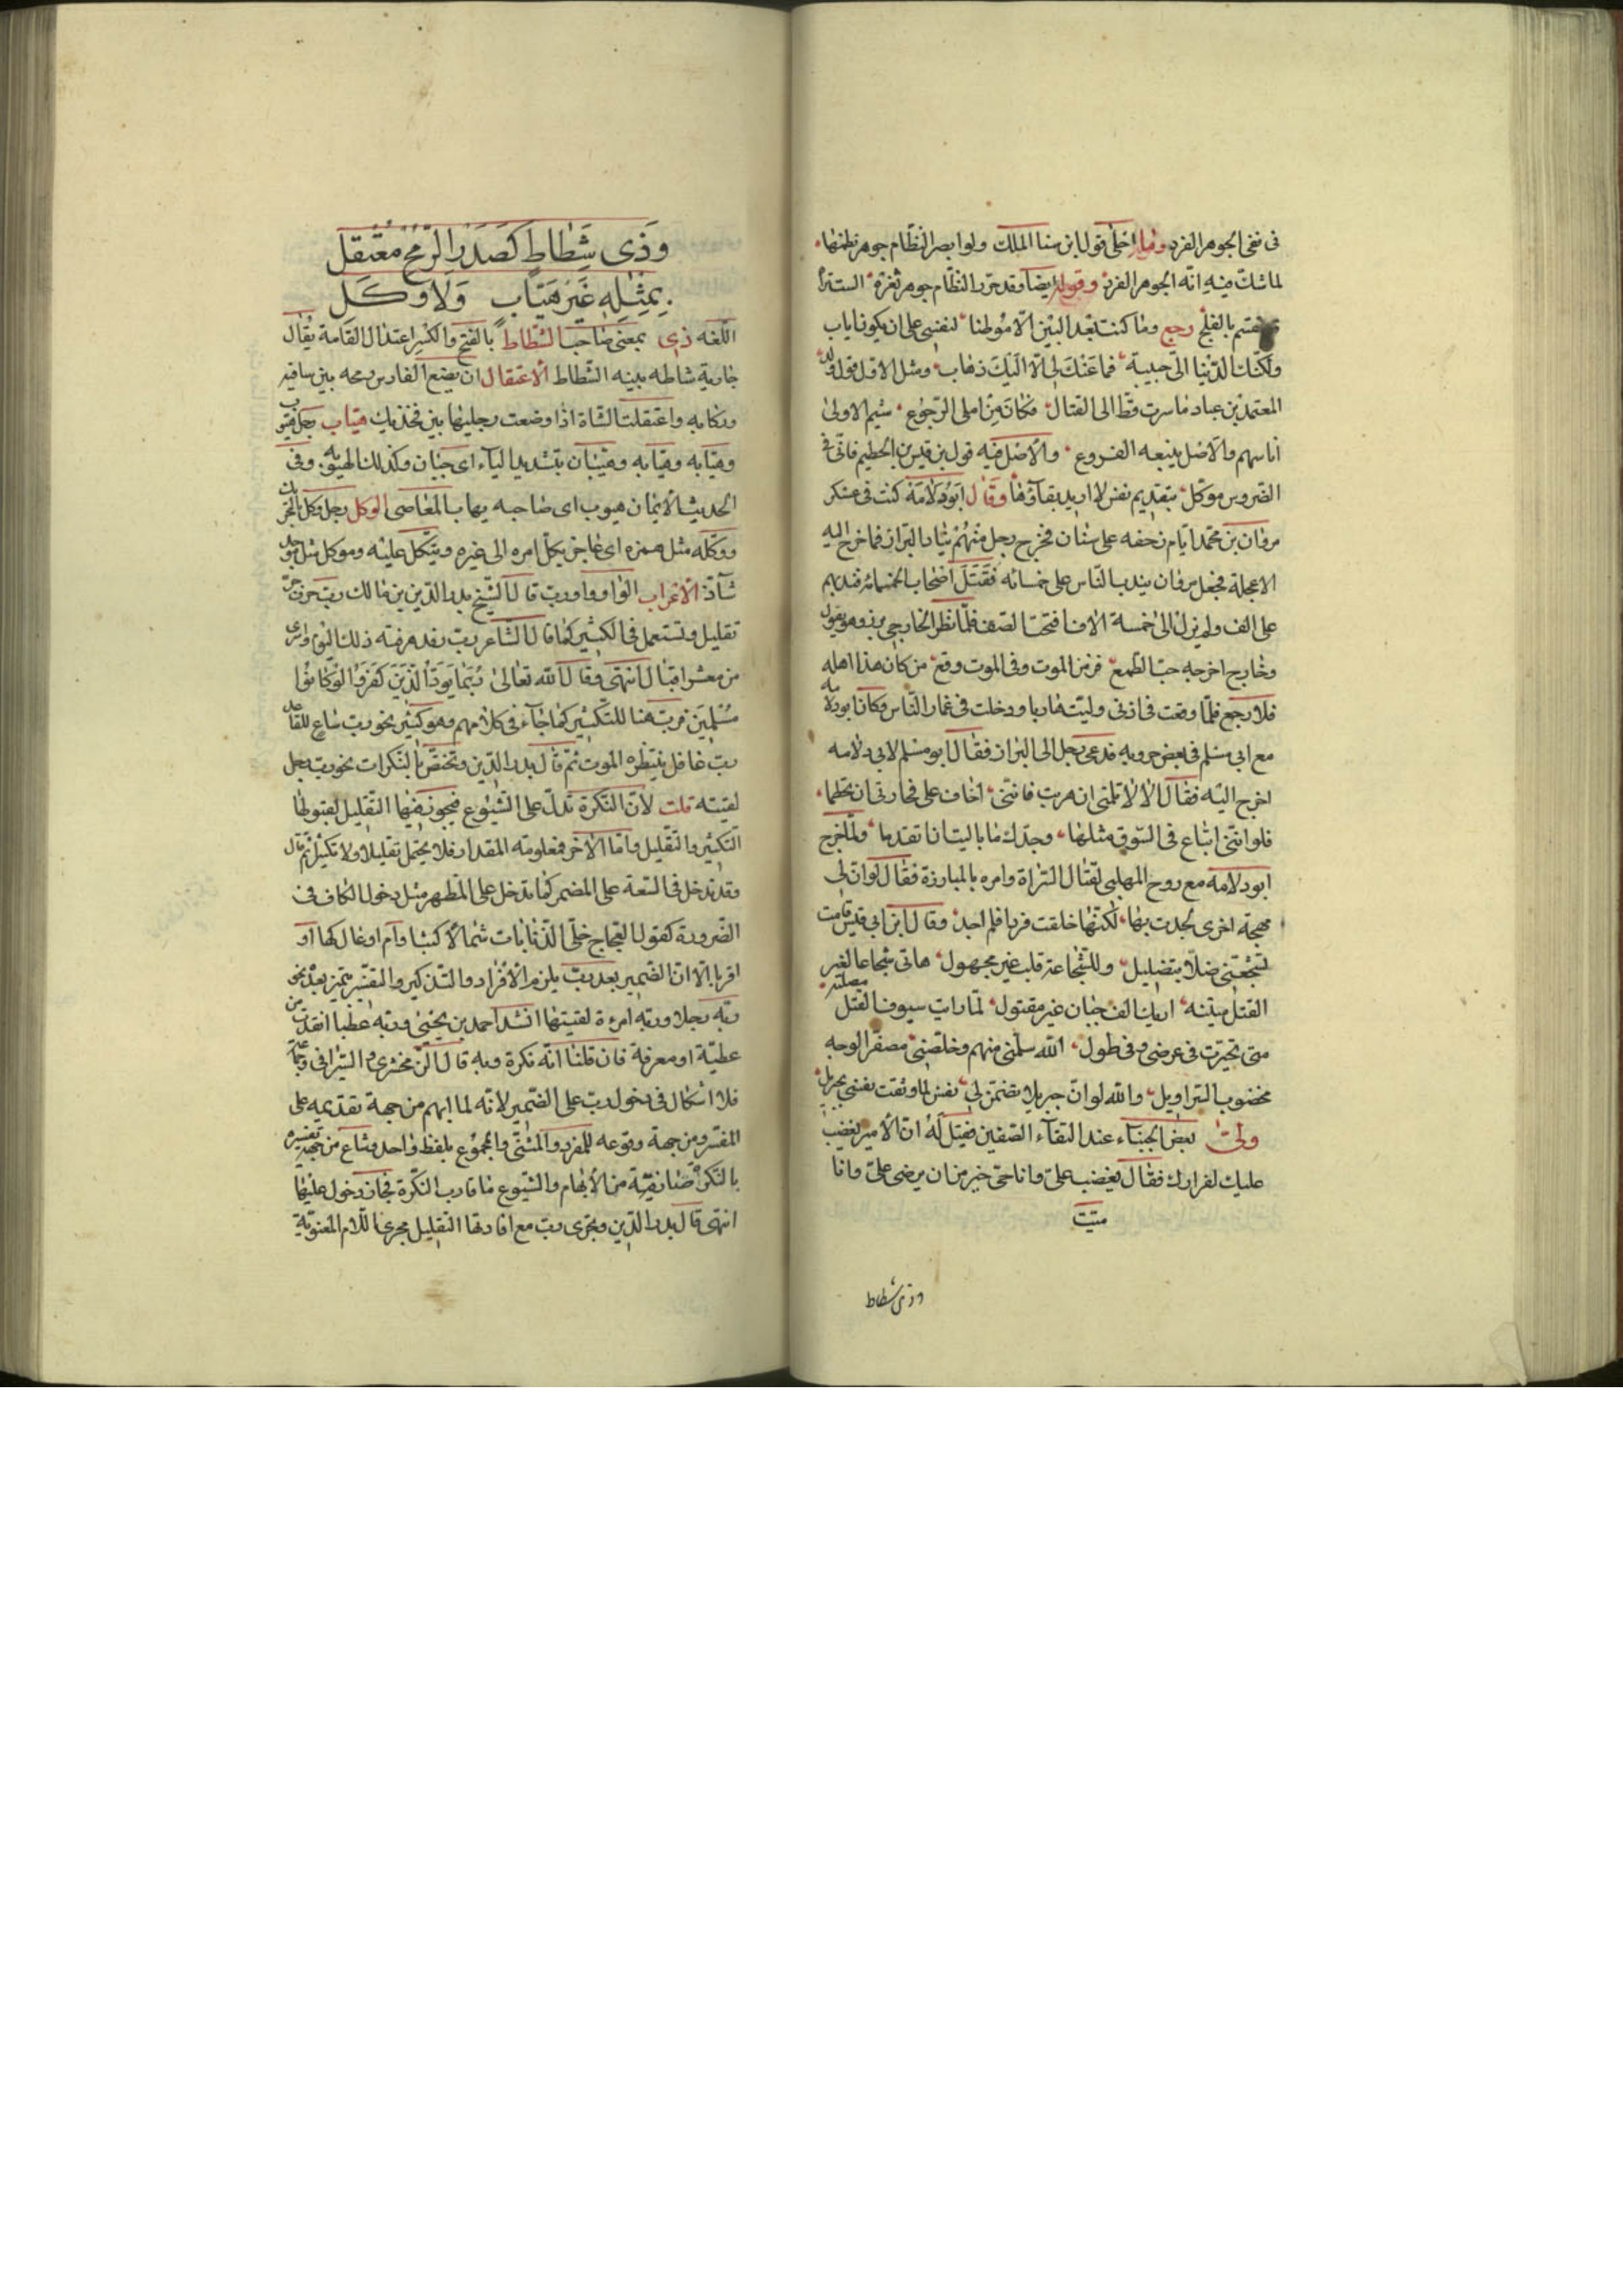 فى نفى الجوهر الفرد وما احلى قول ابن سنا الملك ولو ابصر النظام جوهر نظمها
لما شك فيه انه الجوهر الفرد وقوله ايضا وقد حرر النظام جوهر ثغرة الست
بالفلج رجع وما كنت بعد البين الا موطنا لنفسى على ان يكون اياب
ولكنك الدنيا الى حبيبة فما عنك لى الا اليك ذهاب ومثل الاول قول
المعتمد بن عباد ما سرت قط الى القتال فكان من املى الرجوع شيم الاولى
انا منهم والاصل يتبعه الفروع والاصل فيه قول بن قيس بن الخطيم فانى فى
الضروس موكل بتقديم نفس لا اريد بقآءها وقال ابو دلامة كنت فى عسكر
مروان بن محمد ايام زحفه على سنان فخرج رجل منهم ينادى البراز فما خرج اليه
الا عجله فجعل مروان يندب الناس على خمسمائه فقتل اصحاب الخمسمائه فندبهم
على الف ولم يزل الى خمسة الاف فافتحت الصف فلما نظر الخارجى برز وهو يقول
وخارج اخرجه حب الطمع فر من الموت وفى الموت وقع من كان هذا اهله
فلا رجع فلما وقعت فى اذنى وليت هاربا ودخلت فى غمار الناس وكان ابو دلامه
مع ابى مسلم فى بعض حروبه فدعى رجل الى البراز فقال ابو مسلم لابى دلامه
اخرج اليه فقال الا لا تلمنى ان هربت فاننى اخاف على فخارتى ان تحطما
فلو اننى ابتاع فى السوق مثلها وجدك ما باليت ان اتقدما ولما خرج
ابو دلامه مع روح المهلبى لقتال الشراة وامره بالمبارزة فقال لو ان لى
مهجة اخرى لجدت بها لكنها خلقت فردا فلم اجد وقال ابن ابى قيس قامت
تشجعنى ضلا بتضليل وللشجاعة قلب غير مجهول هاتى شجاعا لغير
القتل ميتته اريك الف جبان غير مقتول لما رايت سيوف القتل مصلته
متى تحيرت فى عرضى وفى طول الله سلمنى منهم وخلصنى مصفر الوجه
مخضوب السراويل والله لو ان جبريلا تضمن لى نفسى لما وثقت نفسى بجبريل
وليّ بعض الجبناء عند التقآء الصفين فقيل له ان الامير يغضب
عليك لفرارك فقال يغضب على وانا حى خير من ان يرضى على وانا
ميت
وذى شطاط
وَذِى شِطَاطٍ كَصَدْرِ الرُّمْحِ مُعْتَقِلٍ
بِمِثْلِهِ غَيْرِ هَيَّابٍ وَلَا وَكَلِ
اللغه ذى بمعنى صاحب الشطاط بالفتح والكسر اعتدال القامة يقال
جارية شاطه بينه الشطاط الاعتقال ان يضع الفارس رمحه بين ساقه
وركابه واعتقلت الشاة اذا وضعت رجليها بين فخذيك هياب رجل هيوب
وهيابه وهيابه وهيبان بتشديد اليآء اى جبان وكذلك الهيوبه وفى
الحديث الايمان هيوب اى صاحبه يهاب المعاصى الوكل رجل وكل بالتحريك
ووكله مثل همزه اى عاجز يكل امره الى غيره ويتكل عليه وموكل مثل
شآذ الاعراب الواو واو رب قال الشيخ بدر الدين بن مالك رب حرف جر
تقليل وتستعمل فى الكثير كما قال الشاعر رب رفد هرقته ذلك اليوم واسرى
من معشر اقيال انتهى وقال الله تعالى رُبَمَا يَوَدُّ الَّذِينَ كَفَرُوا لَوْ كَانُوا
مُسْلِمِينَ فرب هنا للتكثير كما جآء فى كلامهم وهو كثير نحو رب ساع للقاعد
رب غافل ينتظره الموت ثم قال بدر الدين وتختص بالنكرات نحو رب رجل
لقيته قلت لان النكرة تدل على الشيوع فيجوز فيها التقليل لقبولها
التكثير والتقليل واما الاخر فمعلومه المقدار فلا يحتمل تقليلا ولا تكثيرا ثم قال
وقد تدخل فى السعة على المضمر كما تدخل على المظهر مثل دخول الكاف فى
الضرورة كقول العجاج خلى الذنابات شمالا كثبا وام اوعال كها او
اقربا الا ان الضمير بعد رب يلزم الافراد والتذكير والمفسر بتميز بعد نحو
ربه رجلا وربه امرءة لقيتها انشد احمد بن يحيى وربه عطبا انقذت من
عطبه او معرفة فان قلنا انه نكرة وبه قال الزمخشرى والسيرافى
فلا اشكال فى دخول رب على الضمير لانه لما ابهم من جهة تقديمه على
المفسر ومن جهة وقوعه للمفرد والمثنى والمجموع بلفظ واحد وشاع من جهة تفسيره
بالنكرة صار فيه من الابهام والشيوع ما قارب النكرة فجاز دخول عليها
انتهى قال بدر الدين ويجرى رب مع افادتها التقليل مجرى اللام المقوية